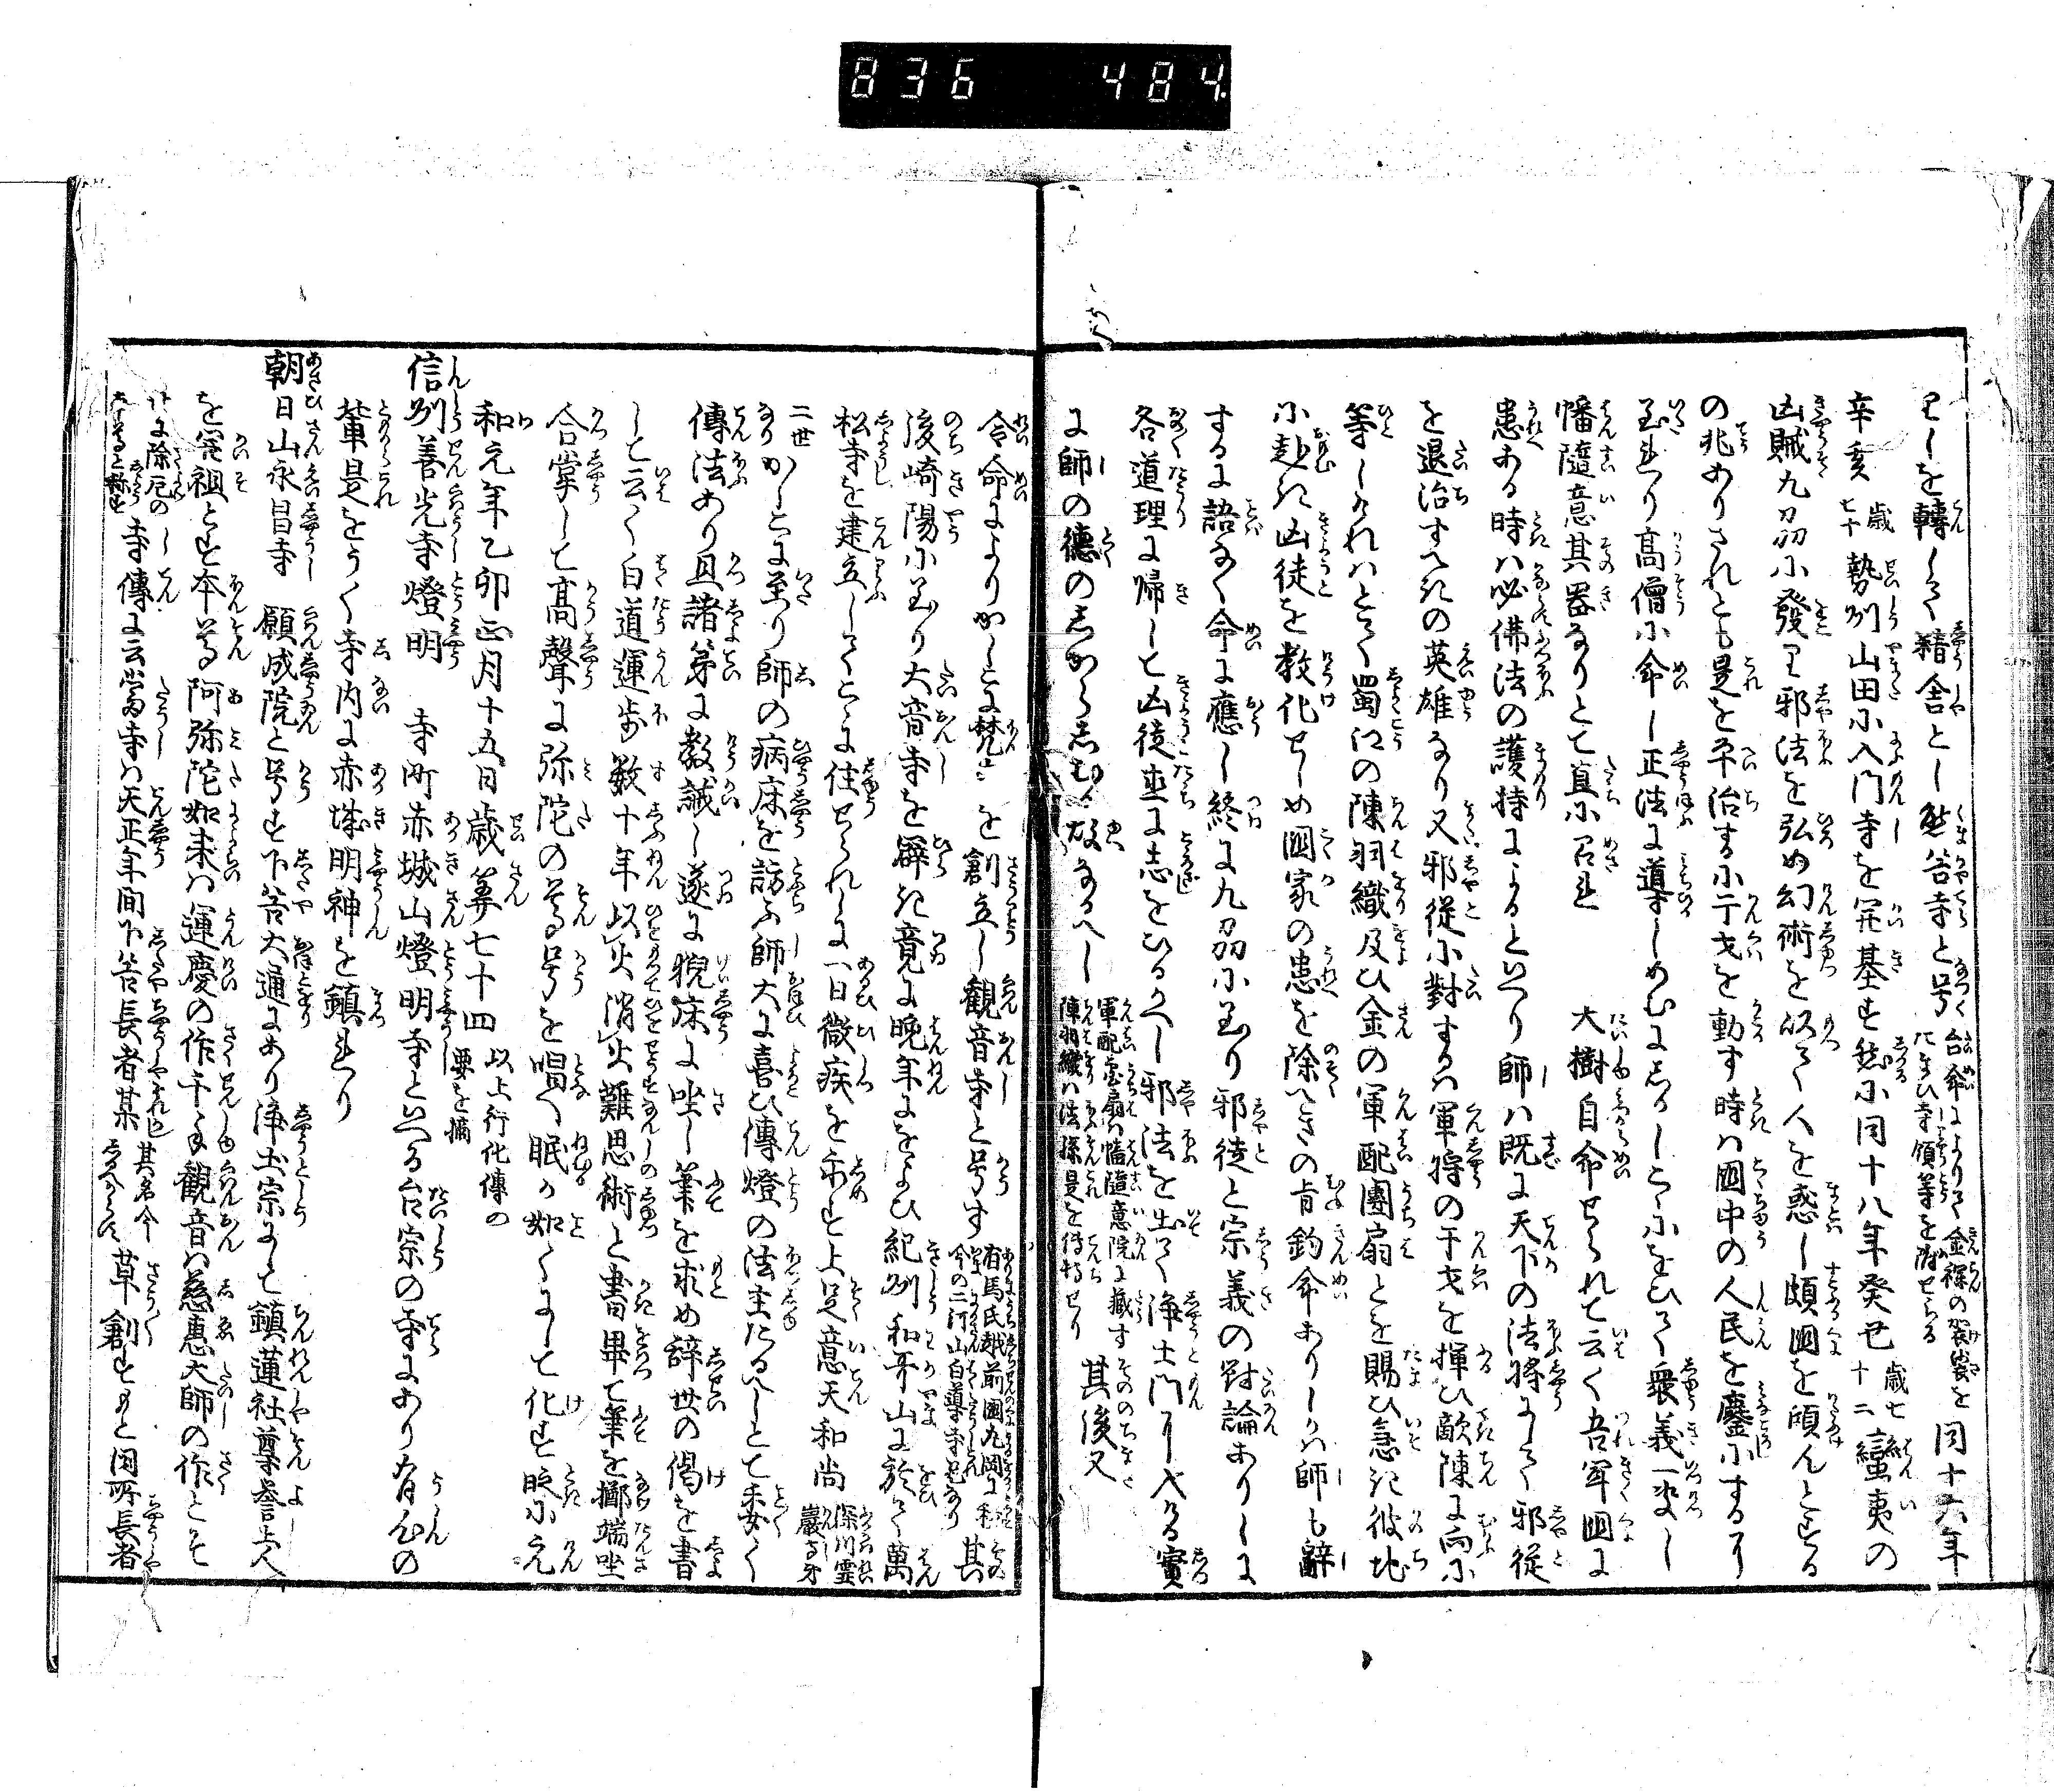 836 484.
りしを轉して藉舎とし熊谷寺と号 台命によりて金襴の袈裟を たまひ寺領等を附せらる 同十六年
辛亥 歳七十 勢州山田に入門寺を開基す然に同十八年癸丑 歳七十二 蠻夷の
凶賊九刕に發り邪法を弘め幻術を以て人を惑し頗国を傾んとする
の兆ありされとも是を平治するに干戈を動す時は国中の人民を鏖にするに
至れり高僧に命し正法に導しめむにしかしとこゝにをひて衆義一决し
幡隨意其器なりとて直に召れ 大樹自命せられて云く吾軍国に
患ある時は必佛法の護持によると然り師は既に天下の法將にして邪徒
を退治すへきの英雄なり又邪徒に對するは軍將の干戈を揮ひ敵陳に向に
等しけれはとて蜀江の陳羽織及ひ金の軍配團扇とを賜ひ急き彼地
に赴き凶徒を教化せしめ国家の患を除へきの旨釣命ありしかは師も辭
するに語なく命に應し終に九刕に至り邪徒と宗義の對論ありしに
各道理に帰して凶徒直に志をひるかへし邪法を出て浄土門に入る實
に師の德のしからしむる故なるへし 軍配團扇は幡隨意院に藏す 陳羽織は法孫是を侍持せり 其後又
令命によりかしこに梵宇を創立し観音寺と号す 有馬氏越前国九岡に移 今の二河山白導寺是なり 其
後崎陽に至り大音寺を闢き竟に晩年におよひ紀州和哥山に於て萬
松寺を建立してこゝに住せられしに一日微疾を示す上足意天和尚 深川霊巖寺第二世
なりかしこに至り師の病床を訪ふ師大に喜ひ傳燈の法主たるへしとて委く
傳法あり且諸弟に教誡し遂に猊床に坐し筆を求め辞世の偈を書
して云く白道運歩数十年以火消火難思術と書畢て筆を擲端坐
合掌して高聲に弥陀の尊号を唱へ眠か如くにして化す時に元
和元年乙卯正月十五日歳算七十四 以上行化傳の 要を摘
信州善光寺燈明 寺町赤城山燈明寺といへる台宗の寺にあり有なんの
輩是をうく寺内に赤城明神を鎮れり
朝日山永昌寺 願成院と号す下谷大通にあり浄土宗にして鎮蓮社尊誉上人
を開祖とす本尊阿弥陀如来は運慶の作千手観音は慈惠大師の作とそ
除厄の 尊と称す 寺傳に云當寺は天正年間下谷長者某 其名今 しるへからす 草創すもと同所長者